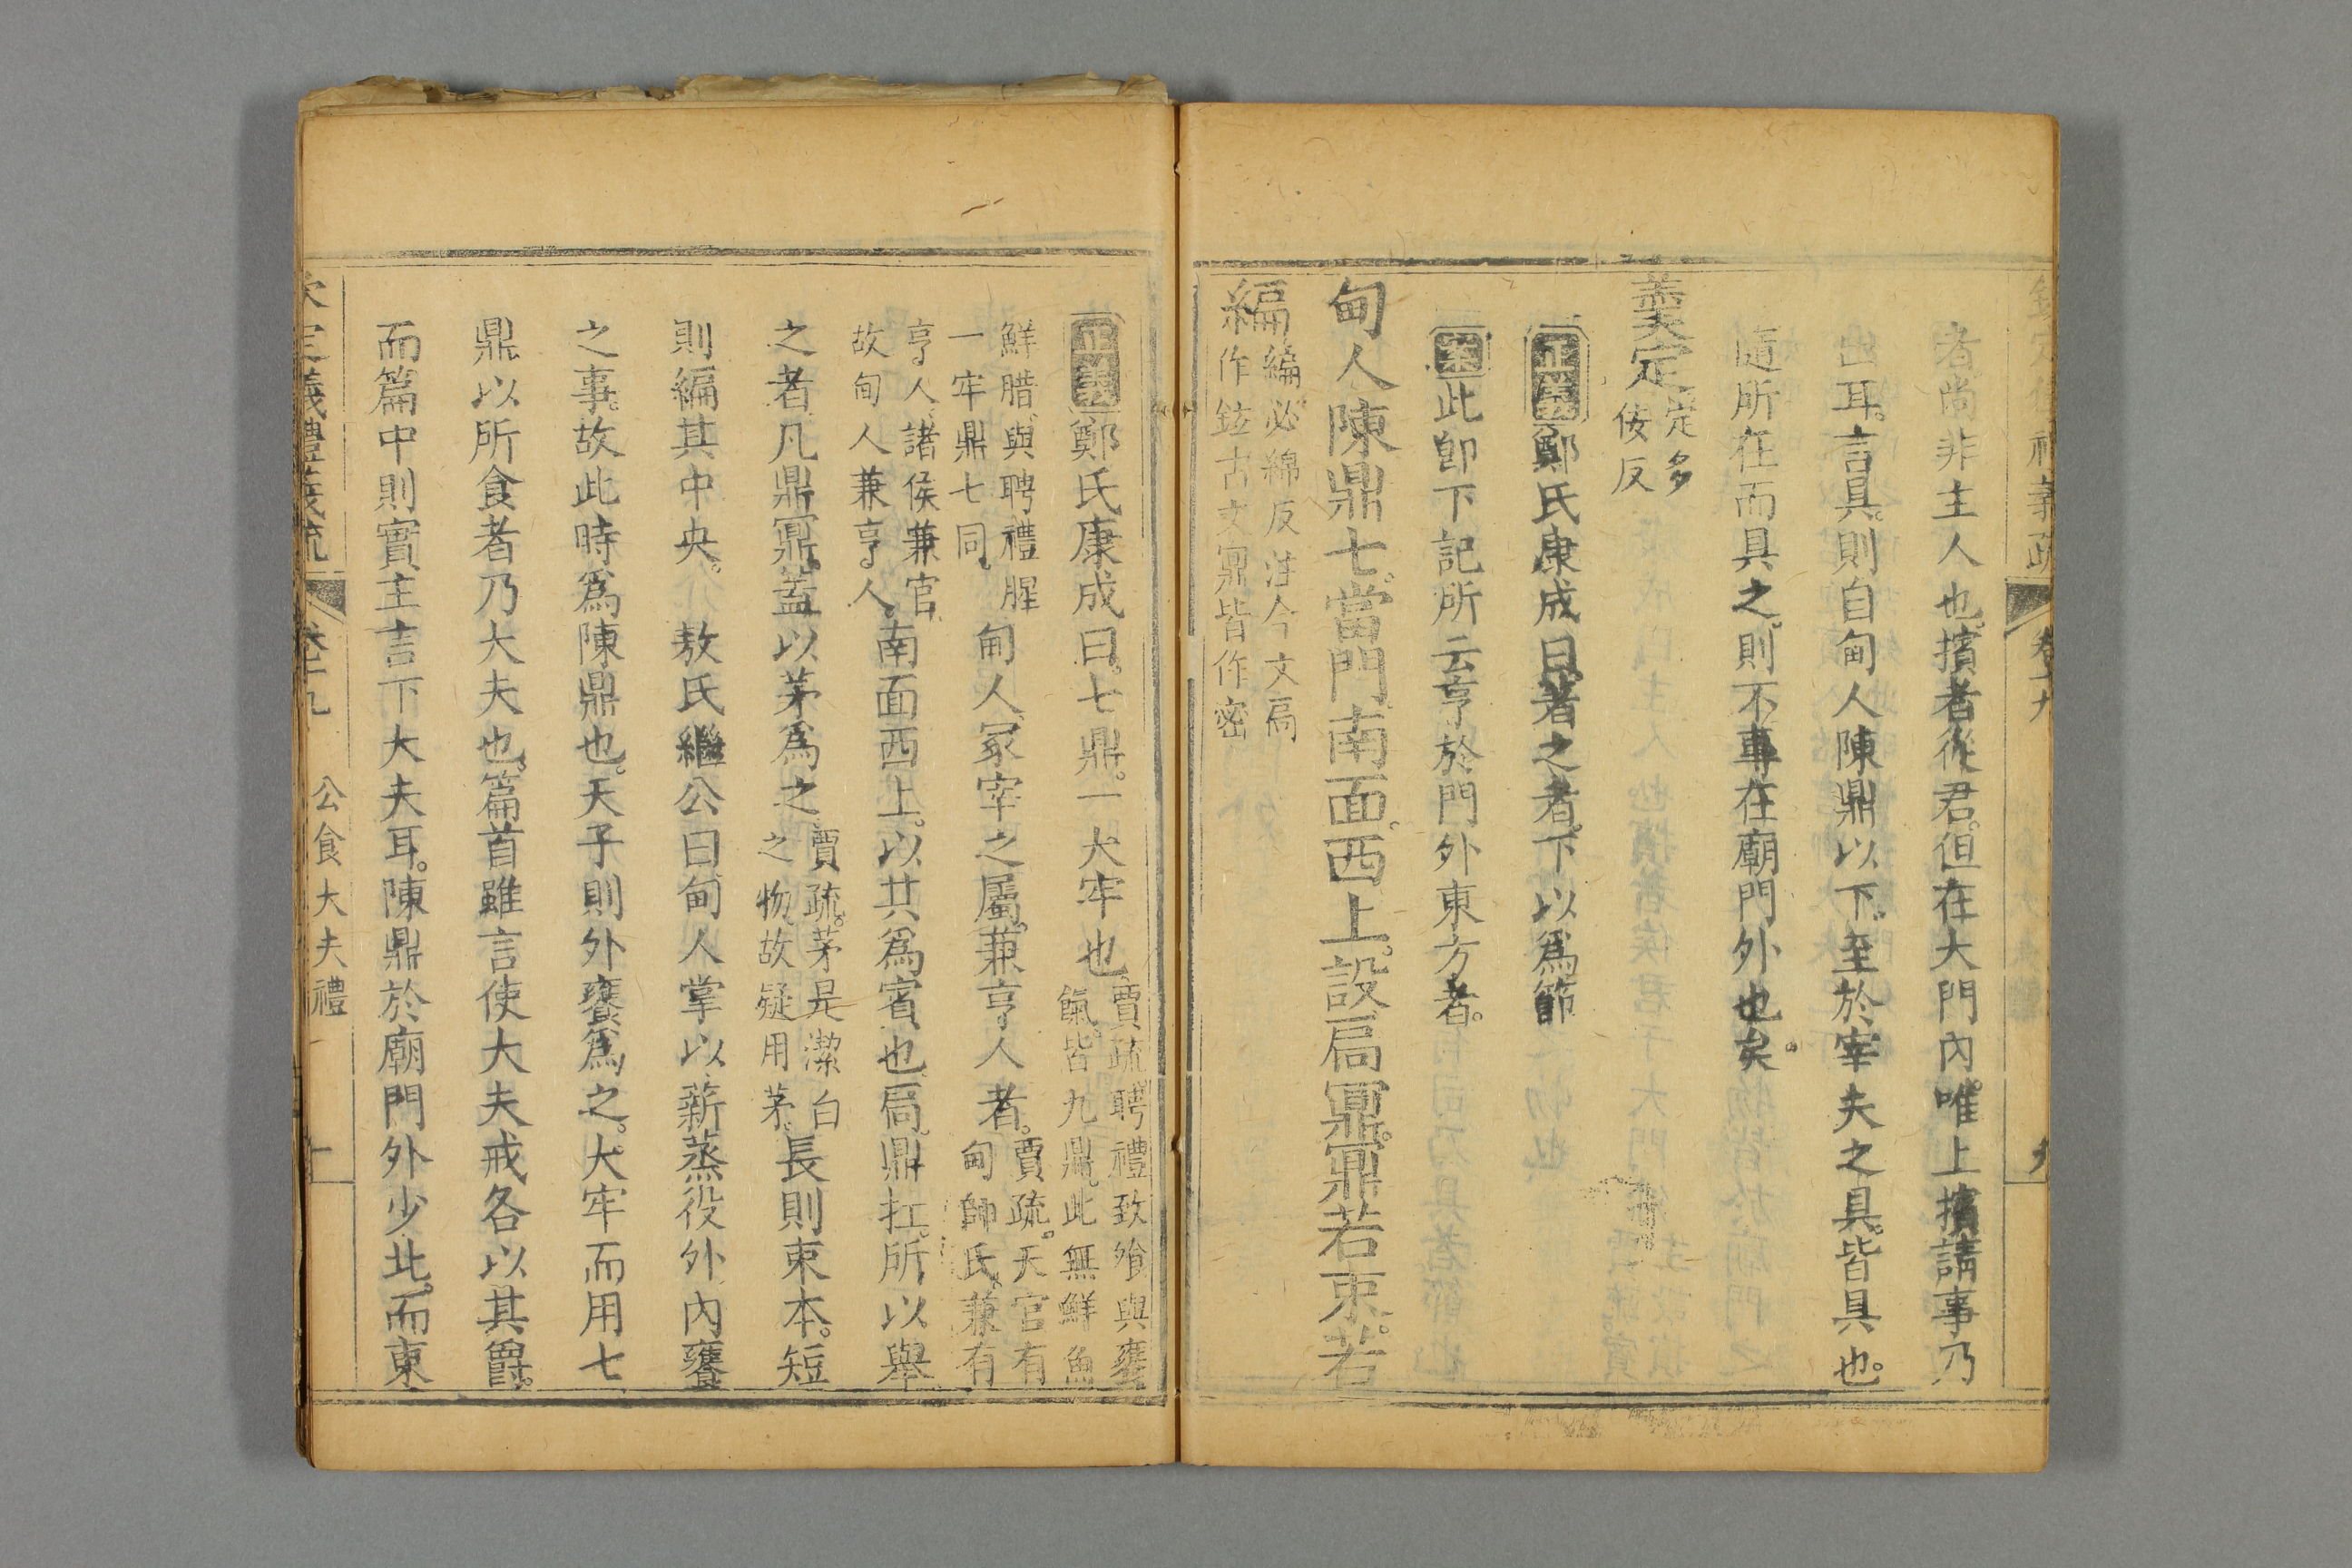 者尚非主人也。擯者從君。但在大門內。唯上擯請事乃
出耳。言具。則自甸人陳鼎以下。至於宰夫之具。皆具也。
隨所在而具之。則不專在廟門外也矣。
羹定定多佞反
正義鄭氏康成曰。著之者。下以爲節
案此卽下記所云亨於門外東方者。
甸人陳鼎七。當門南面。西上。設扃鼏。鼏若束。若
編編必綿反注今文扃作鉉古文鼏皆作密
正義鄭氏康成曰。七鼎。一大牢也賈疏聘禮致飧與饔餼。皆九鼎。此無鮮魚
鮮腊。與聘禮腥一牢鼎七同。甸人。冢宰之屬。兼亨人者。賈疏。天官有甸師氏。兼有
亨人。諸侯兼官故甸人兼亨人。南面西上。以其爲賓也。扃。鼎扛。所以舉
之者。凡鼎鼏。蓋以茅爲之賈疏。茅是潔白之物。故疑用茅。長則束本。短
則編其中央。 敖氏繼公曰。甸人掌以薪蒸役外內饔
之事。故此時爲陳鼎也。天子則外饔爲之。大牢而用七
鼎以所食者乃大夫也。篇首雖言使大夫戒各以其爵。
而篇中則實主言下大夫耳。陳鼎於廟門外少北。而東
欽定儀禮義疏 卷十九 公食大夫禮